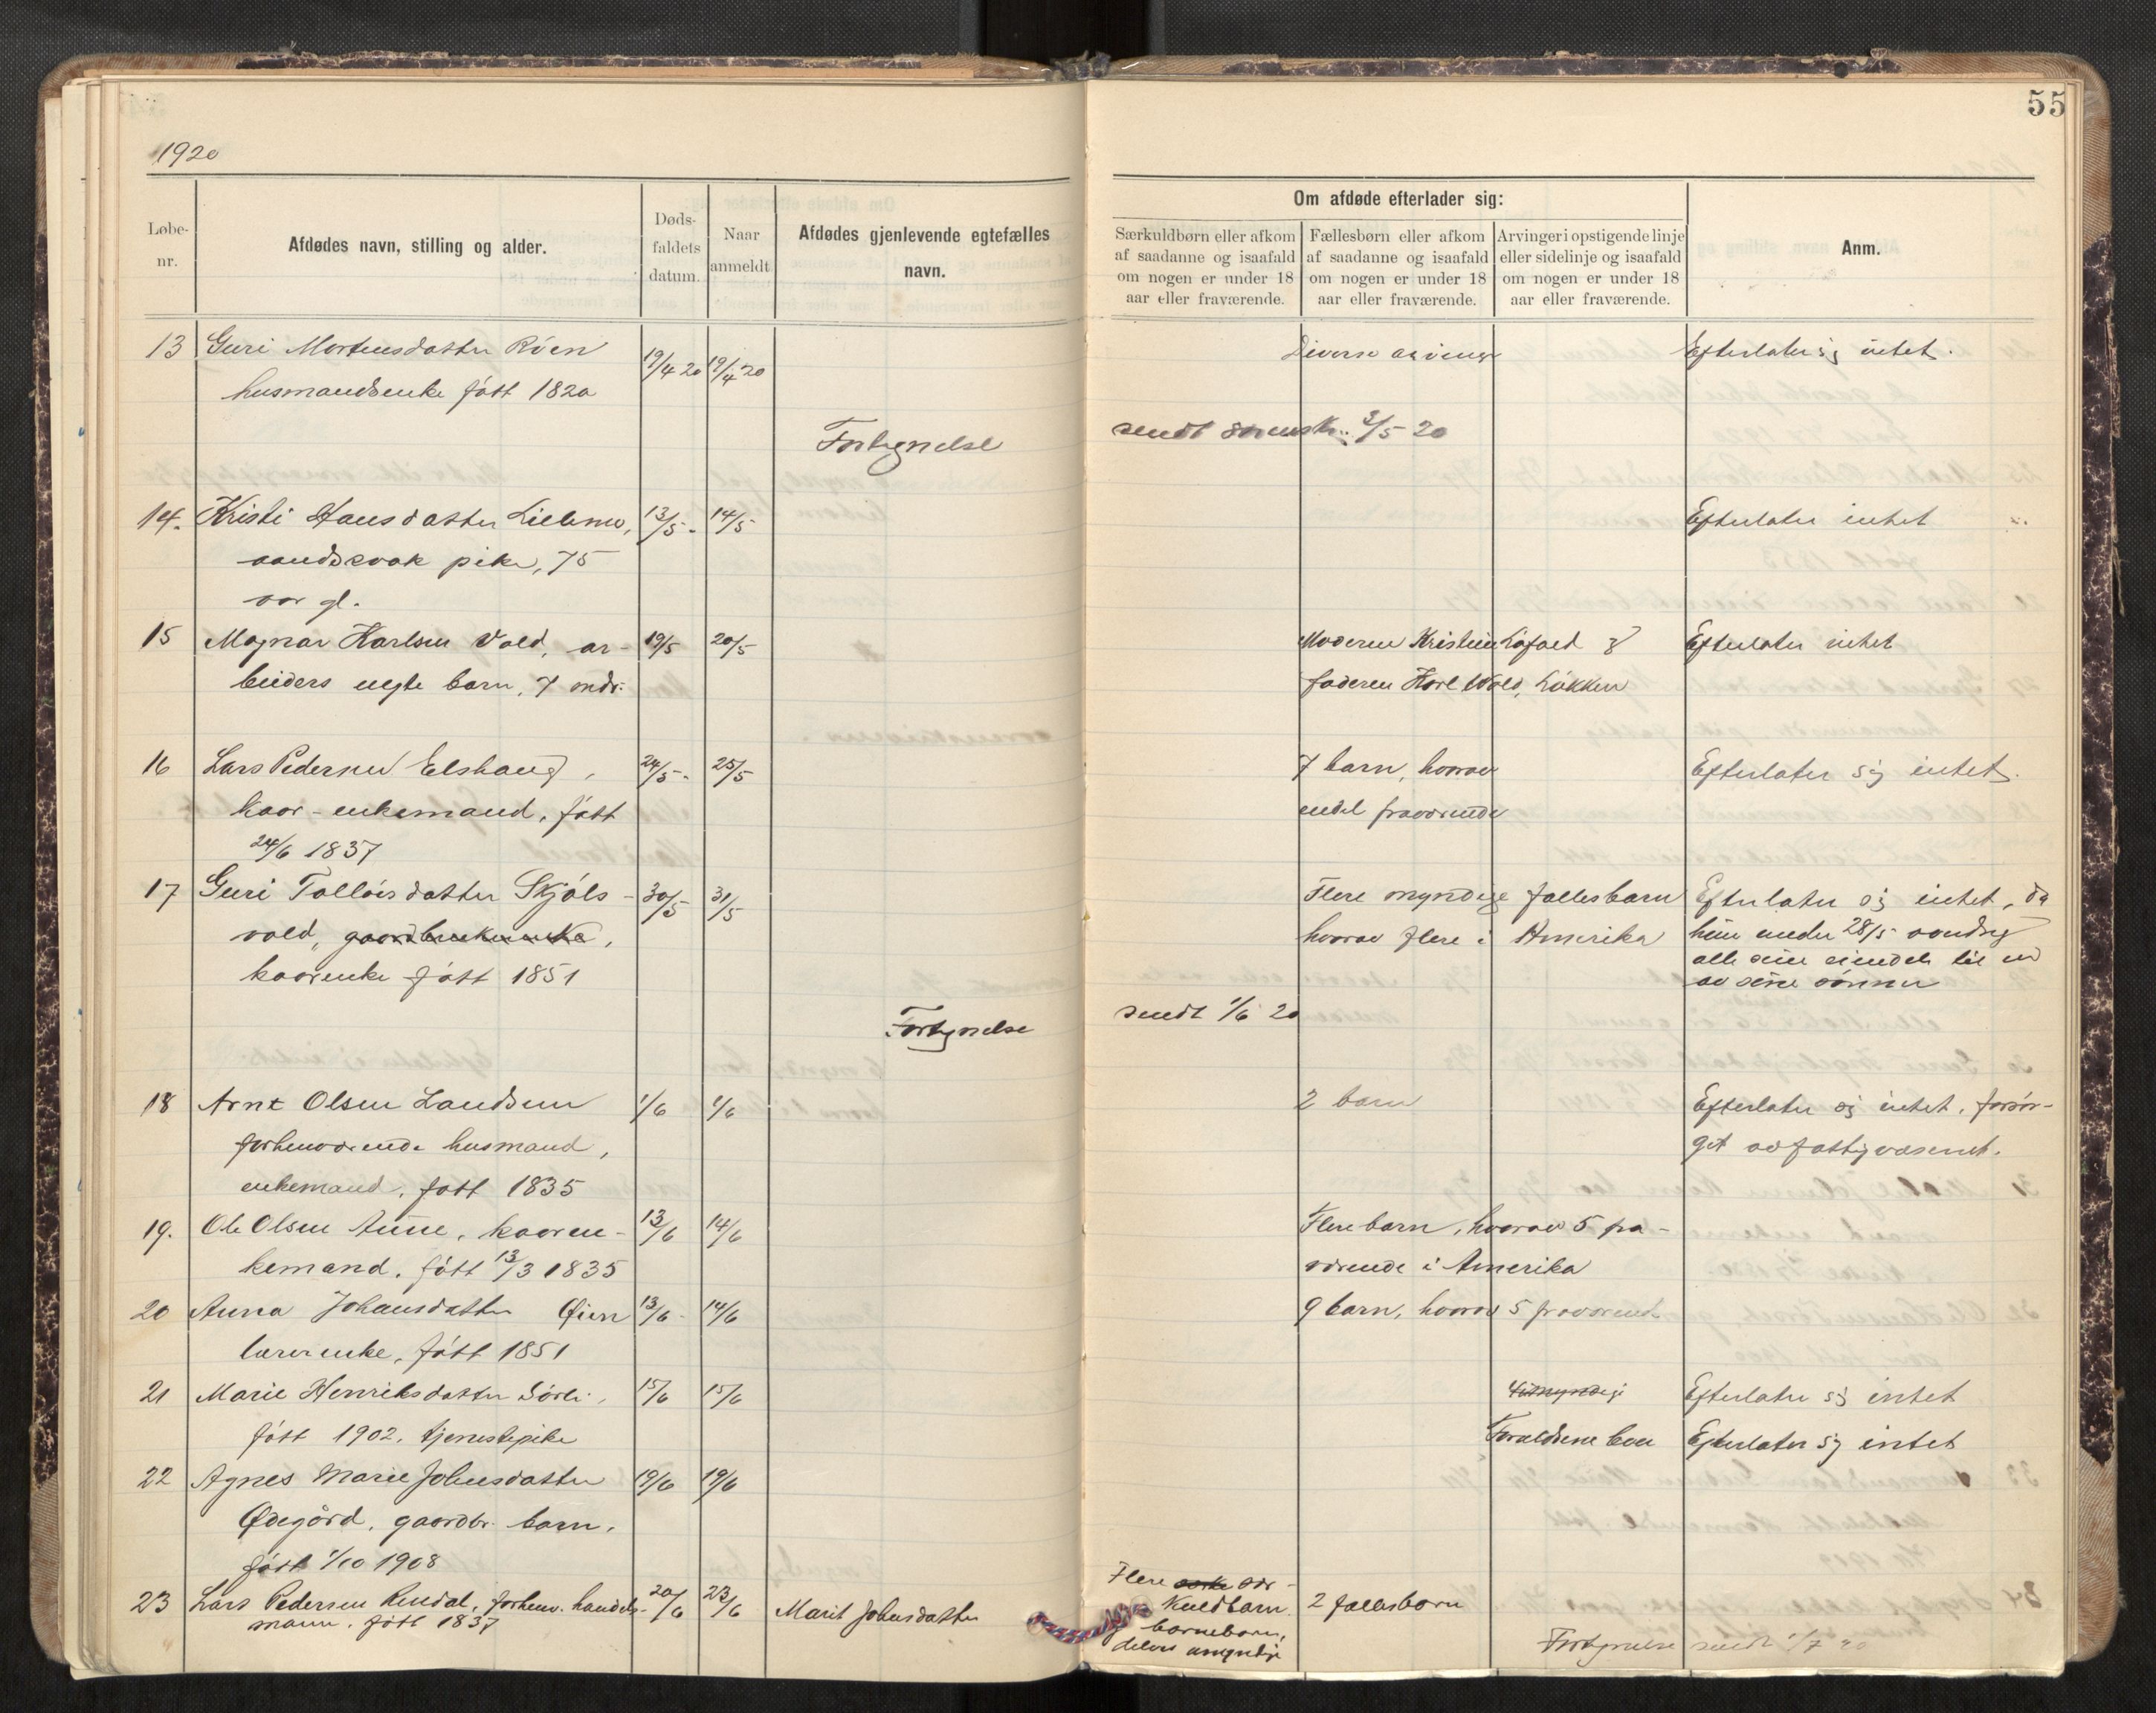 55
1920
Løbe-nr.
Afdødes navn, stilling og alder.
Døds-faldets datum.
Naar anmeldt
Afdødes gjenlevende egtefælles navn.
Om afdøde efterlader sig:
Særkuldbørn eller afkom af saadanne og isaafald om nogen er under 18 aar eller fraværende.
Fællesbørn eller afkom af saadanne og isaafald om nogen er under 18 aar eller fraværende.
Arvinger i opstigende linje eller sidelinje og isaafald om nogen er under 18 aar eller fraværende.
Anm.
13 Guri Mortensdatter Röen 19/4 20 19/4 20 Diverse arvinge Efterlater sig intet.
husmandsenke født 1820
Fortegnelse sendt sorensk. 3/5 20
14. Kristi Hansdatter 13/5 - 14/5 Efterlater intet
aandssvak pike, 75
aar gl.
15 Magnar Karlsen Vold, ar- 19/5 20/5 Moderen Kristine & Efterlater intet
beiders uegte barn, 7 mdr. faderen Karl Wold, Løkken
16 Lars Pedersen Elshaug, 24/5 - 25/5 7 barn, hvorav Efterlater sig intet.
kaar-enkemand, født endel fraværende
24/6 1837
17 Guri Tolleisdatter Skjøls- 30/5 31/5 Flere myndige fællesbarn Efterlater sig intet, da
vold, gaardbrukerenke, hvorav flere i Amerika hun under 28/5 overdrog
kaarenke født 1851 alle sine eiendele til en
av sine sønner
Fortegnelse sendt 1/6 20
18 Arnt Olsen Landsem 1/6 1/6 2 barn Efterlater sig intet, forsør-
forhenværende husmand, get av fattigvæsenet.
enkemand, født 1835
19. Ole Olsen Aune, kaaren- 13/6 14/6 Flere barn, hvorav 5 fra-
kemand, født 13/3 1835 værende i Amerika
20 Anna Johansdatter Øien 13/6 - 14/6 9 barn, hvorav 5 fraværende
lærerenke, født 1851
21 Marie Henriksdatter Sörli, 15/6 15/6 Efterlater sig intet
født 1902, tjenestepike Forældrene Efterlater sig intet
22 Agnes Marie Johnsdatter 19/6 19/6
Ødegård, gaardbr. barn,
født 1/10 1908
23 Lars Pedersen Rendal, forhenv. handels- 20/6 23/6 Marit Johnsdatter Flere sær- 2 fællesbarn
mann, født 1837 kuldbarn
barnebarn,
delvis umyndige
Fortegnelse sendt 1/7 20